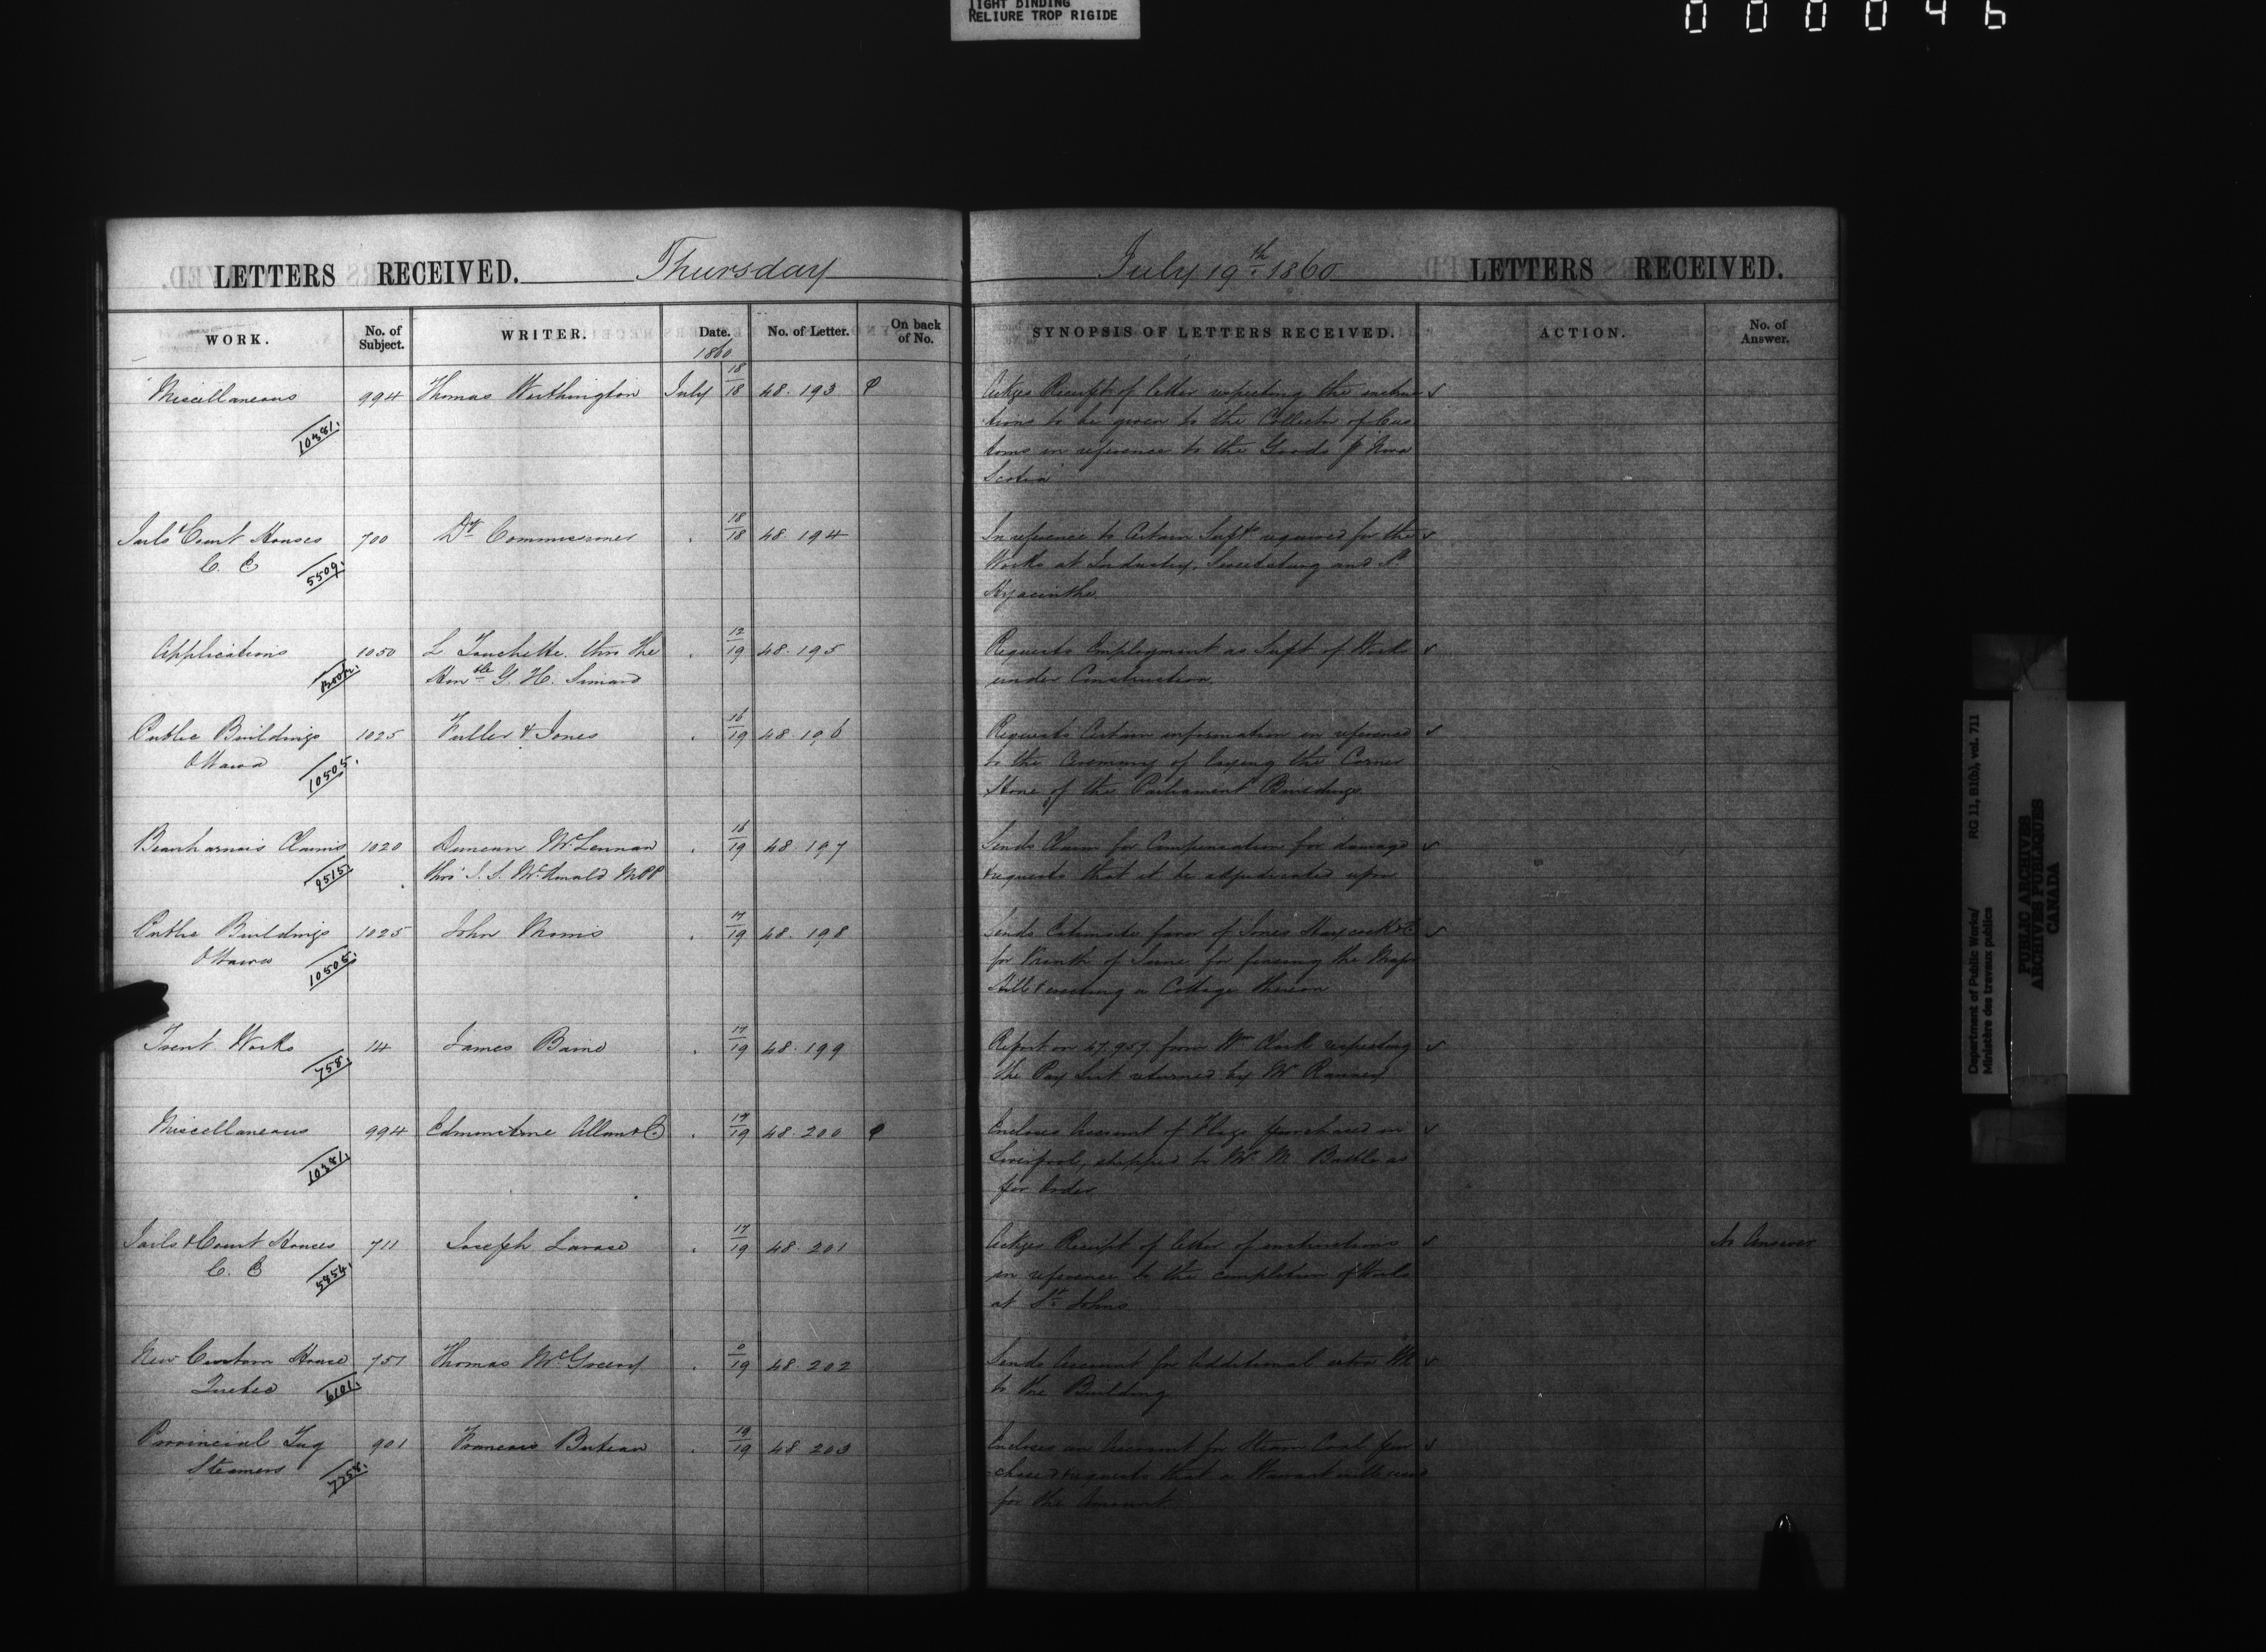 TIGHT BINDING
RELIURE TROP RIGIDE
000046
LETTERS RECEIVED. Thursday
July 19th 1860 LETTERS RECEIVED.
WORK. No. of Subject. WRITER. Date. No. of Letter. On back of No. SYNOPSIS OF LETTERS RECEIVED. ACTION. No. of Answer.
1860
Miscellaneous 994 Thomas Worthington July 18/18 48.193 Ackges Receipt of letter respecting the instruc
10381. tions to be given to the Collector of Cus
toms in reference to the Goods p Nova
Scotia
Jails & Court Houses 700 Dy Commissioner . 18/18 48.194 In reference to Certain Supts required for the
C. E 5509. Works at Industry, Sweetsburg and St
Hyacinthe
Applications 1050 L Touchette thro the . 12/19 48.195 Requests Employment as Supt of Works
Honble G. H. Simard under Construction
Public Buildings 1025 Fuller & Jones . 16/19 48.196 Requests Certain information in reference
Ottawa 10505. to the Ceremony of laying the Corner
Stone of the Parliament Buildings
Beauharnois Claims 1020 Duncan McLennan . 16/19 48.197 Sends Claim for Compensation for damage
9515 thro' J. S. McDonald MPP & requests that it be adjudicated upon
Public Buildings 1025 John Morris . 17/19 48.198 Sends Estimate favor of Jones Haycock & C
Ottawa 10505. for Month of June for fencing the Major
Hill & erecting a Cottage thereon
Trent Works 14 James Baine . 17/19 48.199 Report on 47.957 from Wm Clark respecting
758. the Pay List returned by Mr Ranney
Miscellaneous 994 Edmonstone Allan & Co . 17/19 48.200 Encloses Account of Flags purchased in
10381. Liverpool, shipped to Mr M. as
per Order
Jails & Court Houses 711 Joseph Larose . 17/19 48.201 Ackges Receipt of letter of instructions No Answer
C. E 5854. in reference to the completion of Works
at St Johns
New Custom House 751 Thomas McGreevy . 0/19 48.202 Sends Account for Additional extra Wk
Quebec 6101. to the Building
Provincial Tug 901 Francois Buteau . 19/19 48.203 Encloses an Account for Steam Coal pur
Steamers 7258. chased & requests that a Warrant will issue
for the Amount
Department of Public Works/ RG 11, B1(b), vol. 711
Ministère des travaux publics
PUBLIC ARCHIVES
ARCHIVES PUBLIQUES
CANADA